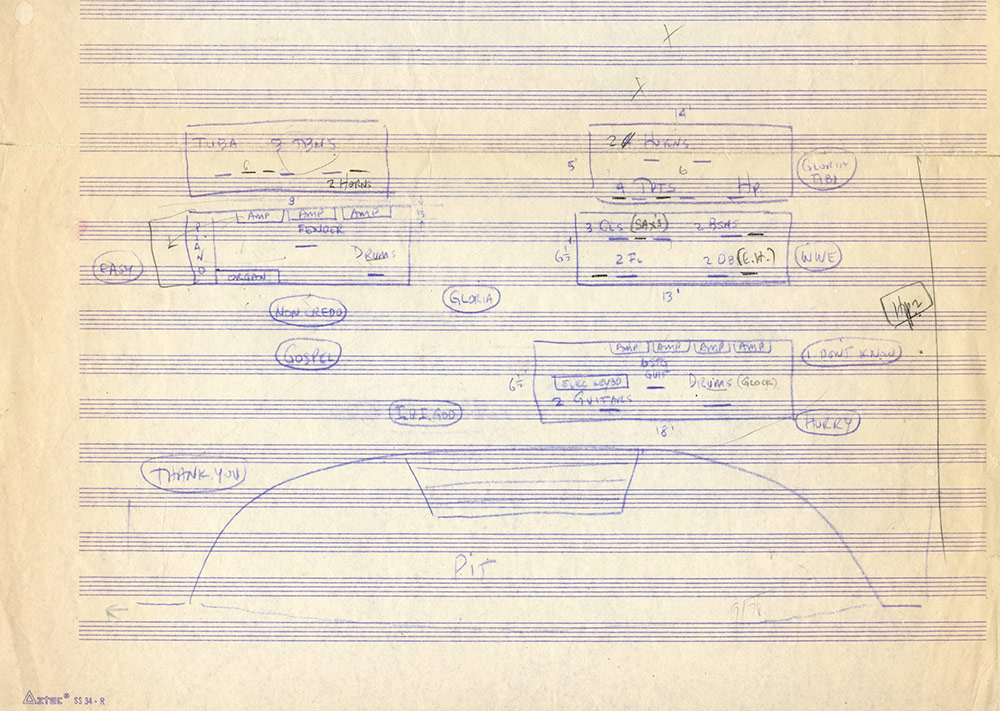 X
X
14'
TUBA 3 TBNS
6
2 HORNS
9
2 HORNS
5'
6
4 TPTS Hp.
GLORIA TIBI
AMP AMP AMP
FENDER
PIANO
DRUMS
ORGAN
EASY
3 CLS (SAX'S) 2 BSNS
6½'
2 FL 2 OB (E.H.)
WWE
13'
NON CREDO
GLORIA
Hp 2
GOSPEL
AMP AMP AMP AMP
GUIT
6½'
ELEC KEYBD
DRUMS (GLOCK)
2 GUITARS
I DON'T KNOW
I.U.I. GOD
18'
HURRY
THANK YOU
PIT
AZTEC® SS 34 - R